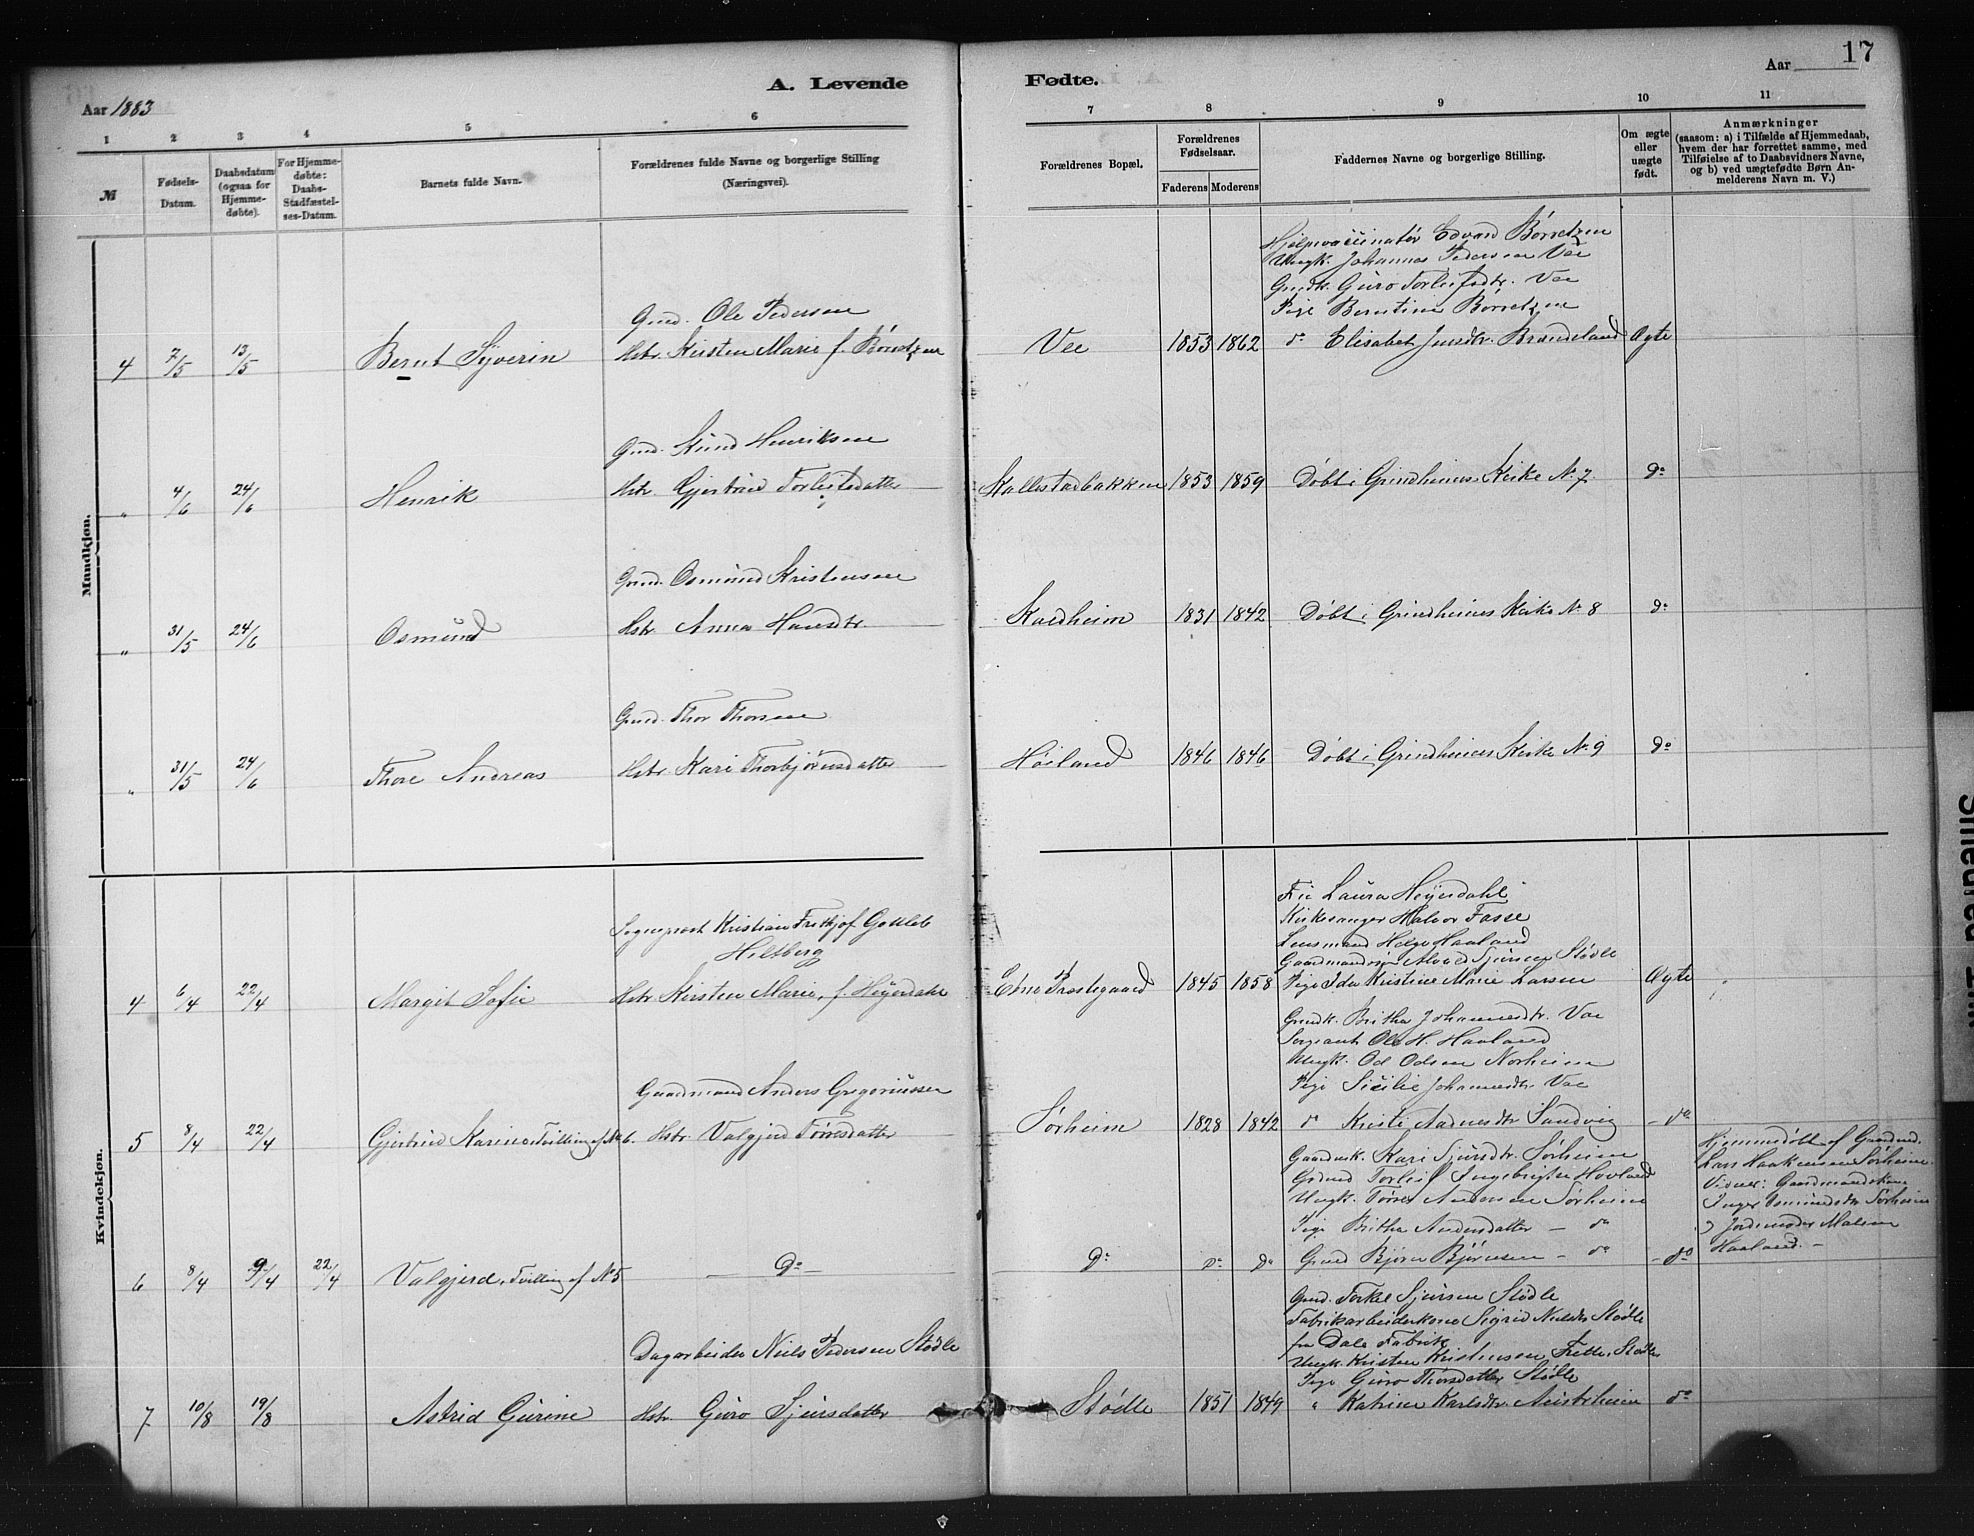 17
A. Levende
Fødte.
Aar 1883
Aar
1 2 3 4 5 6 7 8 9 10 11
№
Fødsels-Datum.
Daabsdatum (ogsaa for Hjemmedøbte).
For Hjemmedøbte: Daabs-Stadfæstelses-Datum.
Barnets fulde Navn.
Forældrenes fulde Navne og borgerlige Stilling
(Næringsvei).
Forældrenes Bopæl.
Forældrenes Fødselsaar.
Faderens Moderens
Faddernes Navne og borgerlige Stilling.
Om ægte eller uægte født.
Anmærkninger
(saasom: a) i Tilfælde af Hjemmedaab,
hvem der har forrettet samme, med
Tilføielse af to Daabsvidners Navne,
og b) ved uægtefødte Børn An-
melderens Navn m. V.)
Mandkjøn.
Hjelpevaccinatør Edvard Børretzen
Ungk. Johannes Pedersen Vae
Gmdk. Guro Torleifsdtr. Vae
Gmd. Ole Pedersen
Pige Berntine Børretzen
4 7/5 13/5 Bernt Syverin Hstr. Kirsten Marie f. Børretzen Vee 1853 1862 do Elisabet Jensdtr. Brandeland Ægte
Gmd. Knud Henriksen
" 4/6 24/6 Henrik Hstr. Gjertrud Torleifsdatter Kallestadbakken 1853 1859 Døbt i Grindheims Kirke No. 7. do
Gmd. Osmund Kristensen
" 31/5 24/6 Osmund Hstr. Anna Hansdtr. Kaldheim 1831 1842 Døbt i Grindheims Kirke No. 8 do
Gmd. Thor Thorsen
" 31/5 24/6 Thore Andreas Hstr. Kari Thorbjørnsdatter Høiland 1846 1846 Døbt i Grindheims Kirke No. 9 do
Kvindekjøn.
Frk Laura Heyerdahl
Kirkesanger Halvor Fasse
Sogneprest Kristian Fritjof Gottleb
Lensmand Helge Haaland
Hiltberg
Gaardmandssøn Alvald Sjursen Stødle
4 6/4 22/4 Margit Sofie Hstr. Kirsten Marie, f. Heyerdahl Etne Præstegaard 1845 1858 Pige Ida Kristine Marie Larsen Ægte
Gmdk. Britha Johannesdtr. Vae
Sergeant Ole H. Haaland
Ungk. Od Odsen Norheim
Gaardmand Anders Gregoriussen
Pige Sicilie Johannesdtr. Vae
5 8/4 22/4 Gjertrud Karine Tvilling af No 6. Hstr. Valgjerd Tørresdatter Sørheim 1828 1842 do Kristi Aadnesdtr Sandvig do
Gaardmk. Kari Sjursdtr. Sørheim
Grdmd Torleif Ingebrigtsen Hovland
Ungk. Tørres Andersen Sørheim
Pige Britha Andersdatter – do
6 8/4 9/4 22/4 Valgjerd, Tvilling af No 5 Do Do Do Do Gmd Bjørn Bjørnsen – do do
Hjemmedøbt af Gaardmd.
Lars Haakensen Sørheim.
Vidner: Gaardmandskone
Inger Osmundsdtr Sørheim
& Jordemoder Malene
Haaland. –
Gmd. Torkel Sjursen Stødle
Fabrikarbeiderkone Sigrid Nielsdtr Stødle
fra Dale Fabrik
Dagarbeider Niels Pedersen Stødle
Ungk. Kristen Kristensen Frette, Stødle
Pige Guro Thorsdatter Stødle
7 10/8 19/8 Astrid Gurine Hstr. Guro Sjursdatter Stødle 1851 1849 " Katrine Karlsdtr. Austrheim do